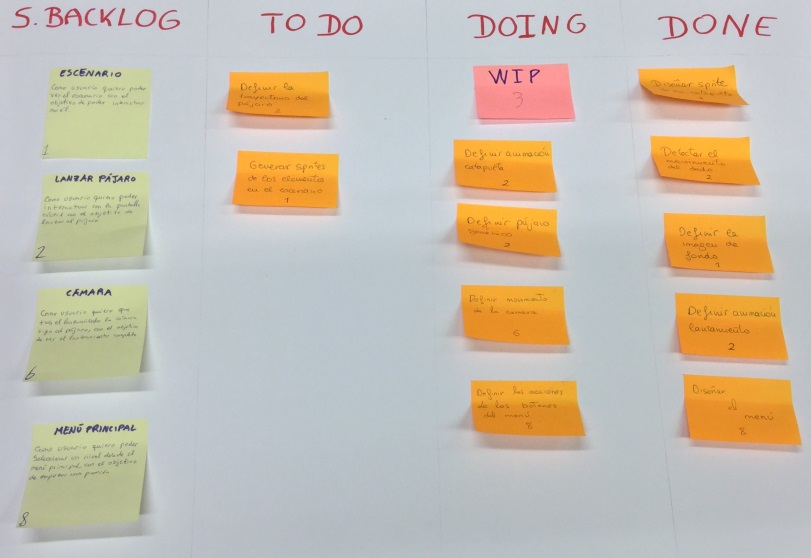 S. BACKLOG
TO DO
DOING
DONE
ESCENARIO
Como usuario quiero poder
ver el escenario con el
objetivo de poder interactuar
con él.
1
LANZAR PÁJARO
Como usuario quiero poder
interactuar con la pantalla
con el objetivo de
lanzar el pájaro
2
CÁMARA
Como usuario quiero que
tras el lanzamiento la cámara
siga al pájaro, con el objetivo
de ver el lanzamiento completo
6
MENÚ PRINCIPAL
Como usuario quiero poder
seleccionar un nivel desde el
menú principal, con el objetivo
de empezar una partida.
8
Definir la
trayectoria del
pájaro
2
Generar sprites
de los elementos
en el escenario
1
WIP
3
Definir animación
catapulta
2
Definir pájaro
2
Definir movimiento
de la cámara
6
Definir las acciones
de los botones
del menú
8
Diseñar sprite
Detectar el
movimiento
del dedo
2
Definir la
imagen de
fondo
1
Definir animación
lanzamiento
2
Diseñar
el menú
8